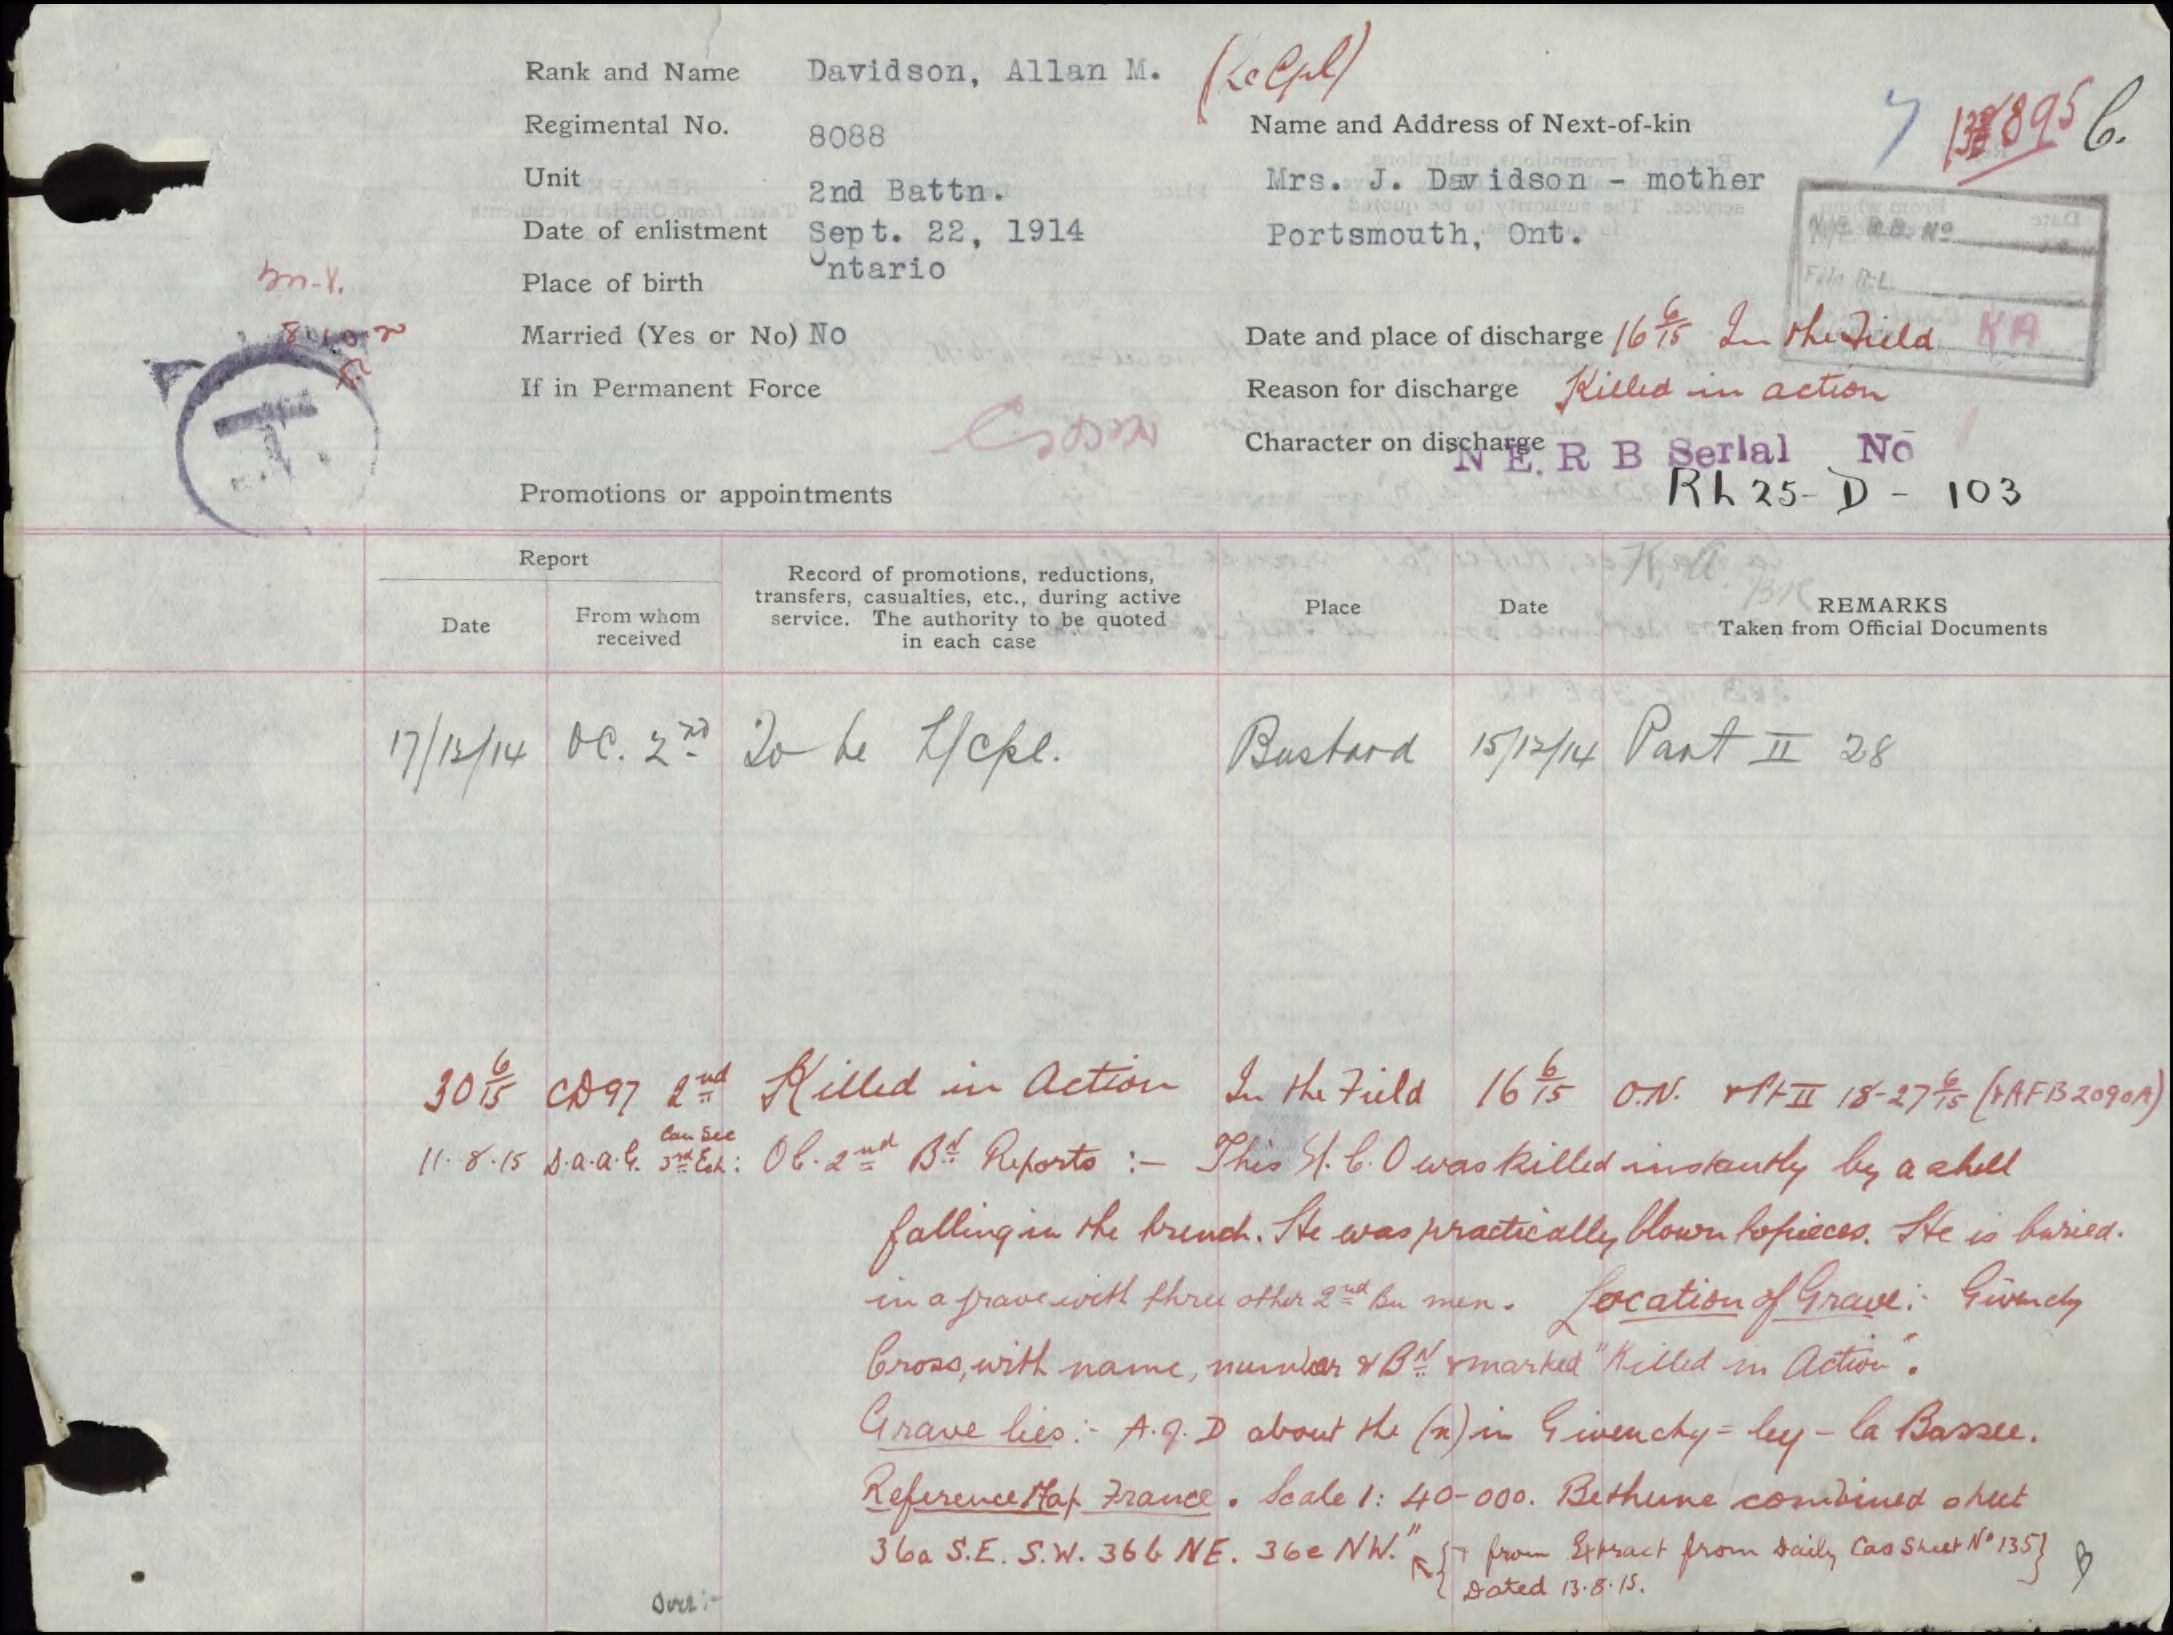 Rank and Name Davidson, Allan M. (Lc Cpl)
Regimental No. 8088
Unit 2nd Battn.
Date of enlistment Sept. 22, 1914
Place of birth Ontario
Married (Yes or No) No
If in Permanent Force
Promotions or appointments
895 C.
Name and Address of Next-of-kin
Mrs. J. Davidson - mother
Portsmouth, Ont.
R.B. No
File R.L.
KA
Date and place of discharge 16 6/15 In the Field
Reason for discharge Killed in action
Character on discharge
N E. R B Serial No
RL 25- D - 103
T.
Report
Date
From whom received
Record of promotions, reductions, transfers, casualties, etc., during active service. The authority to be quoted in each case
Place
Date
REMARKS
Taken from Official Documents
17/12/14 OC. 2nd To be L/Cpl. Bustard 15/12/14 Part II 28
30 6/15 CD97 2nd Killed in Action In the Field 16 6/15 O.N. & Pt II 18-27 6/15 (& AFB2090A)
11.8.15 D.a.a.G. Can Sec 3rd Ech: OC. 2nd Bn Reports :- This N.C.O was killed instantly by a shell
falling in the trench. He was practically blown to pieces. He is buried.
in a grave with three other 2nd Bn men. Location of Grave:- Givenchy
Cross, with name, number & Bn & marked "Killed in Action".
Grave lies:- A.9.D about the (n) in Givenchy=ley-la Bassee.
Reference Map France. Scale 1: 40-000. Bethune combined sheet
36a S.E. S.W. 36b NE. 36c NW."
{ from Extract from Daily Cas Sheet No 135}
Dated 13.8.15.
Over:-